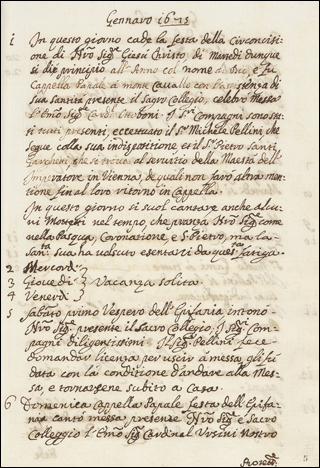 Gennaro 1675
1 In questo giorno cade la festa della Circoncisi-
one di Nr̃o Sig.re Giesù Christo, di Martedì dunque
si diè principio all'Anno col nome di Dio, e fu
Cappella Papale à monte Cavallo con l'assistenza di
sua Santità presente il Sagro Collegio, celebrò Messa
l'Emo Sig.r Card. Ottoboni. I SS.ri Compagni sono sta-
ti tutti presenti, eccettuato il S.r Michele Pellini che
segue colla sua indispositione, et il S.r Pietro Santi
Garghini che si trova al servitio della Maestà dell'
Imperatore in Vienna, de quali non farò altra men-
tione fin al loro ritorno in Cappella.
In questo giorno si suol cantare anche alcu-
ni Mottetti nel tempo che pranza Nr̃o Sig.re come
nella Pasqua, Coronatione, e S. Pietro, ma la
San.tà Sua ha voluto esentarci da questa fatiga.
2 Mercordì
3 Giovedì } Vacanza solita
4 Venerdì
5 Sabato primo Vespero dell'Epifania intonò
Nr̃o Sig.re presente il sacro Collegio, I Sig.ri Com-
pagni diligentissimi. Il Sig.r Pellini fece
domandar licenza per uscir à messa, gli fù
data con la conditione d'andare alla Mes-
sa, e tornarsene subito a Casa.
6 Domenica Cappella Papale festa dell'Epifa-
nia cantò messa, presente Nr̃o Sig.re e Sacro
Collegio l'Emo Sig.r Cardinal Ursini Nostro
5